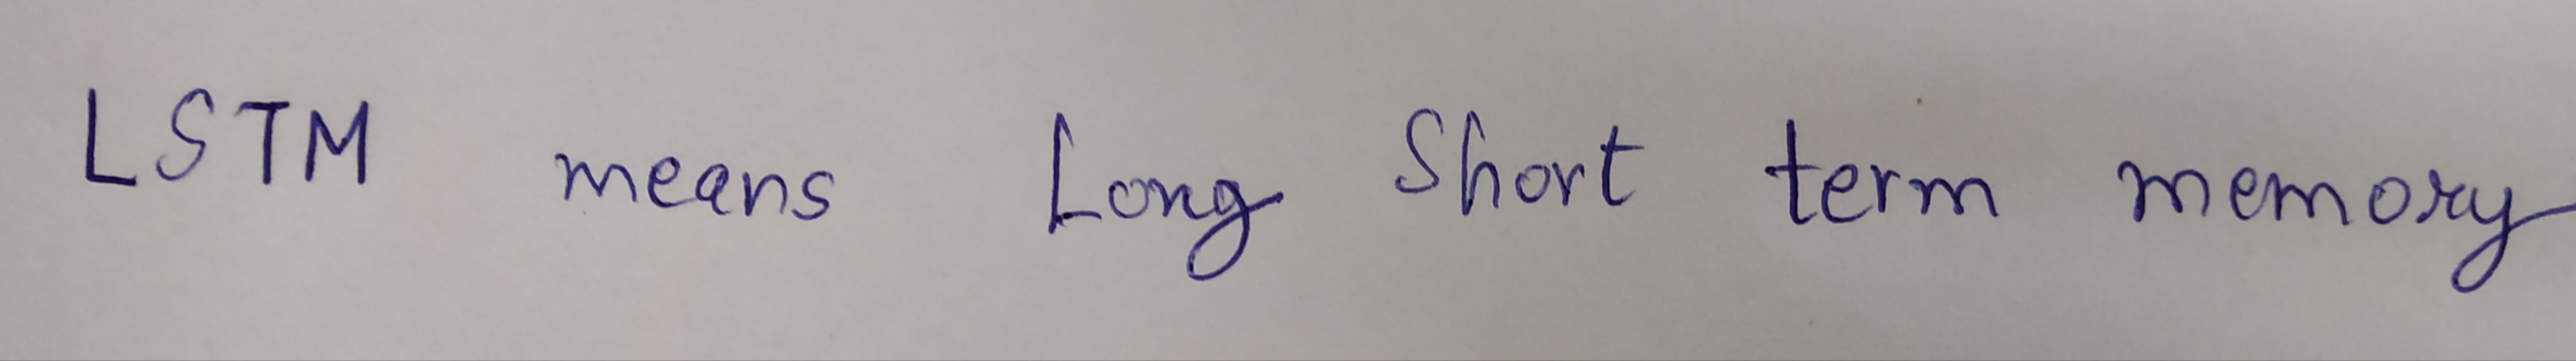 LSTM means Long Short term memory